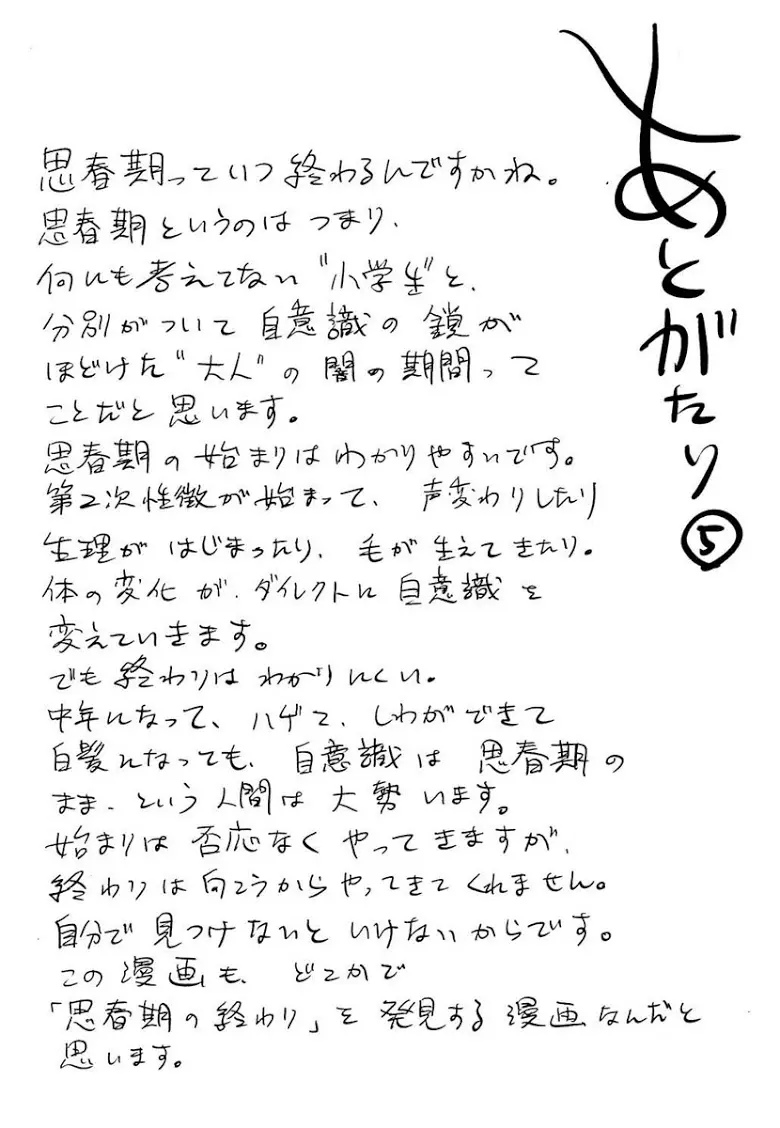 あとがたり⑤
思春期っていつ終わるんですかね。
思春期というのは つまり、
何にも考えてない"小学生"と、
分別がついて 自意識の 鎖が
ほどけた"大人"の 闇の 期間って
ことだと 思います。
思春期の 始まりは わかりやすいです。
第2次性徴が始まって、 声変わりしたり
生理が はじまったり、毛が 生えてきたり。
体の変化が、ダイレクトに 自意識を
変えていきます。
でも 終わりは わかりにくい。
中年になって、ハゲて、しわができて
白髪になっても、自意識は 思春期の
まま、という 人間は 大勢 います。
始まりは 否応なく やってきますが、
終わりは向こうからやってきてくれません。
自分で 見つけないと いけないからです。
この 漫画も、 どこかで
「思春期の終わり」を 発見する 漫画なんだと
思います。